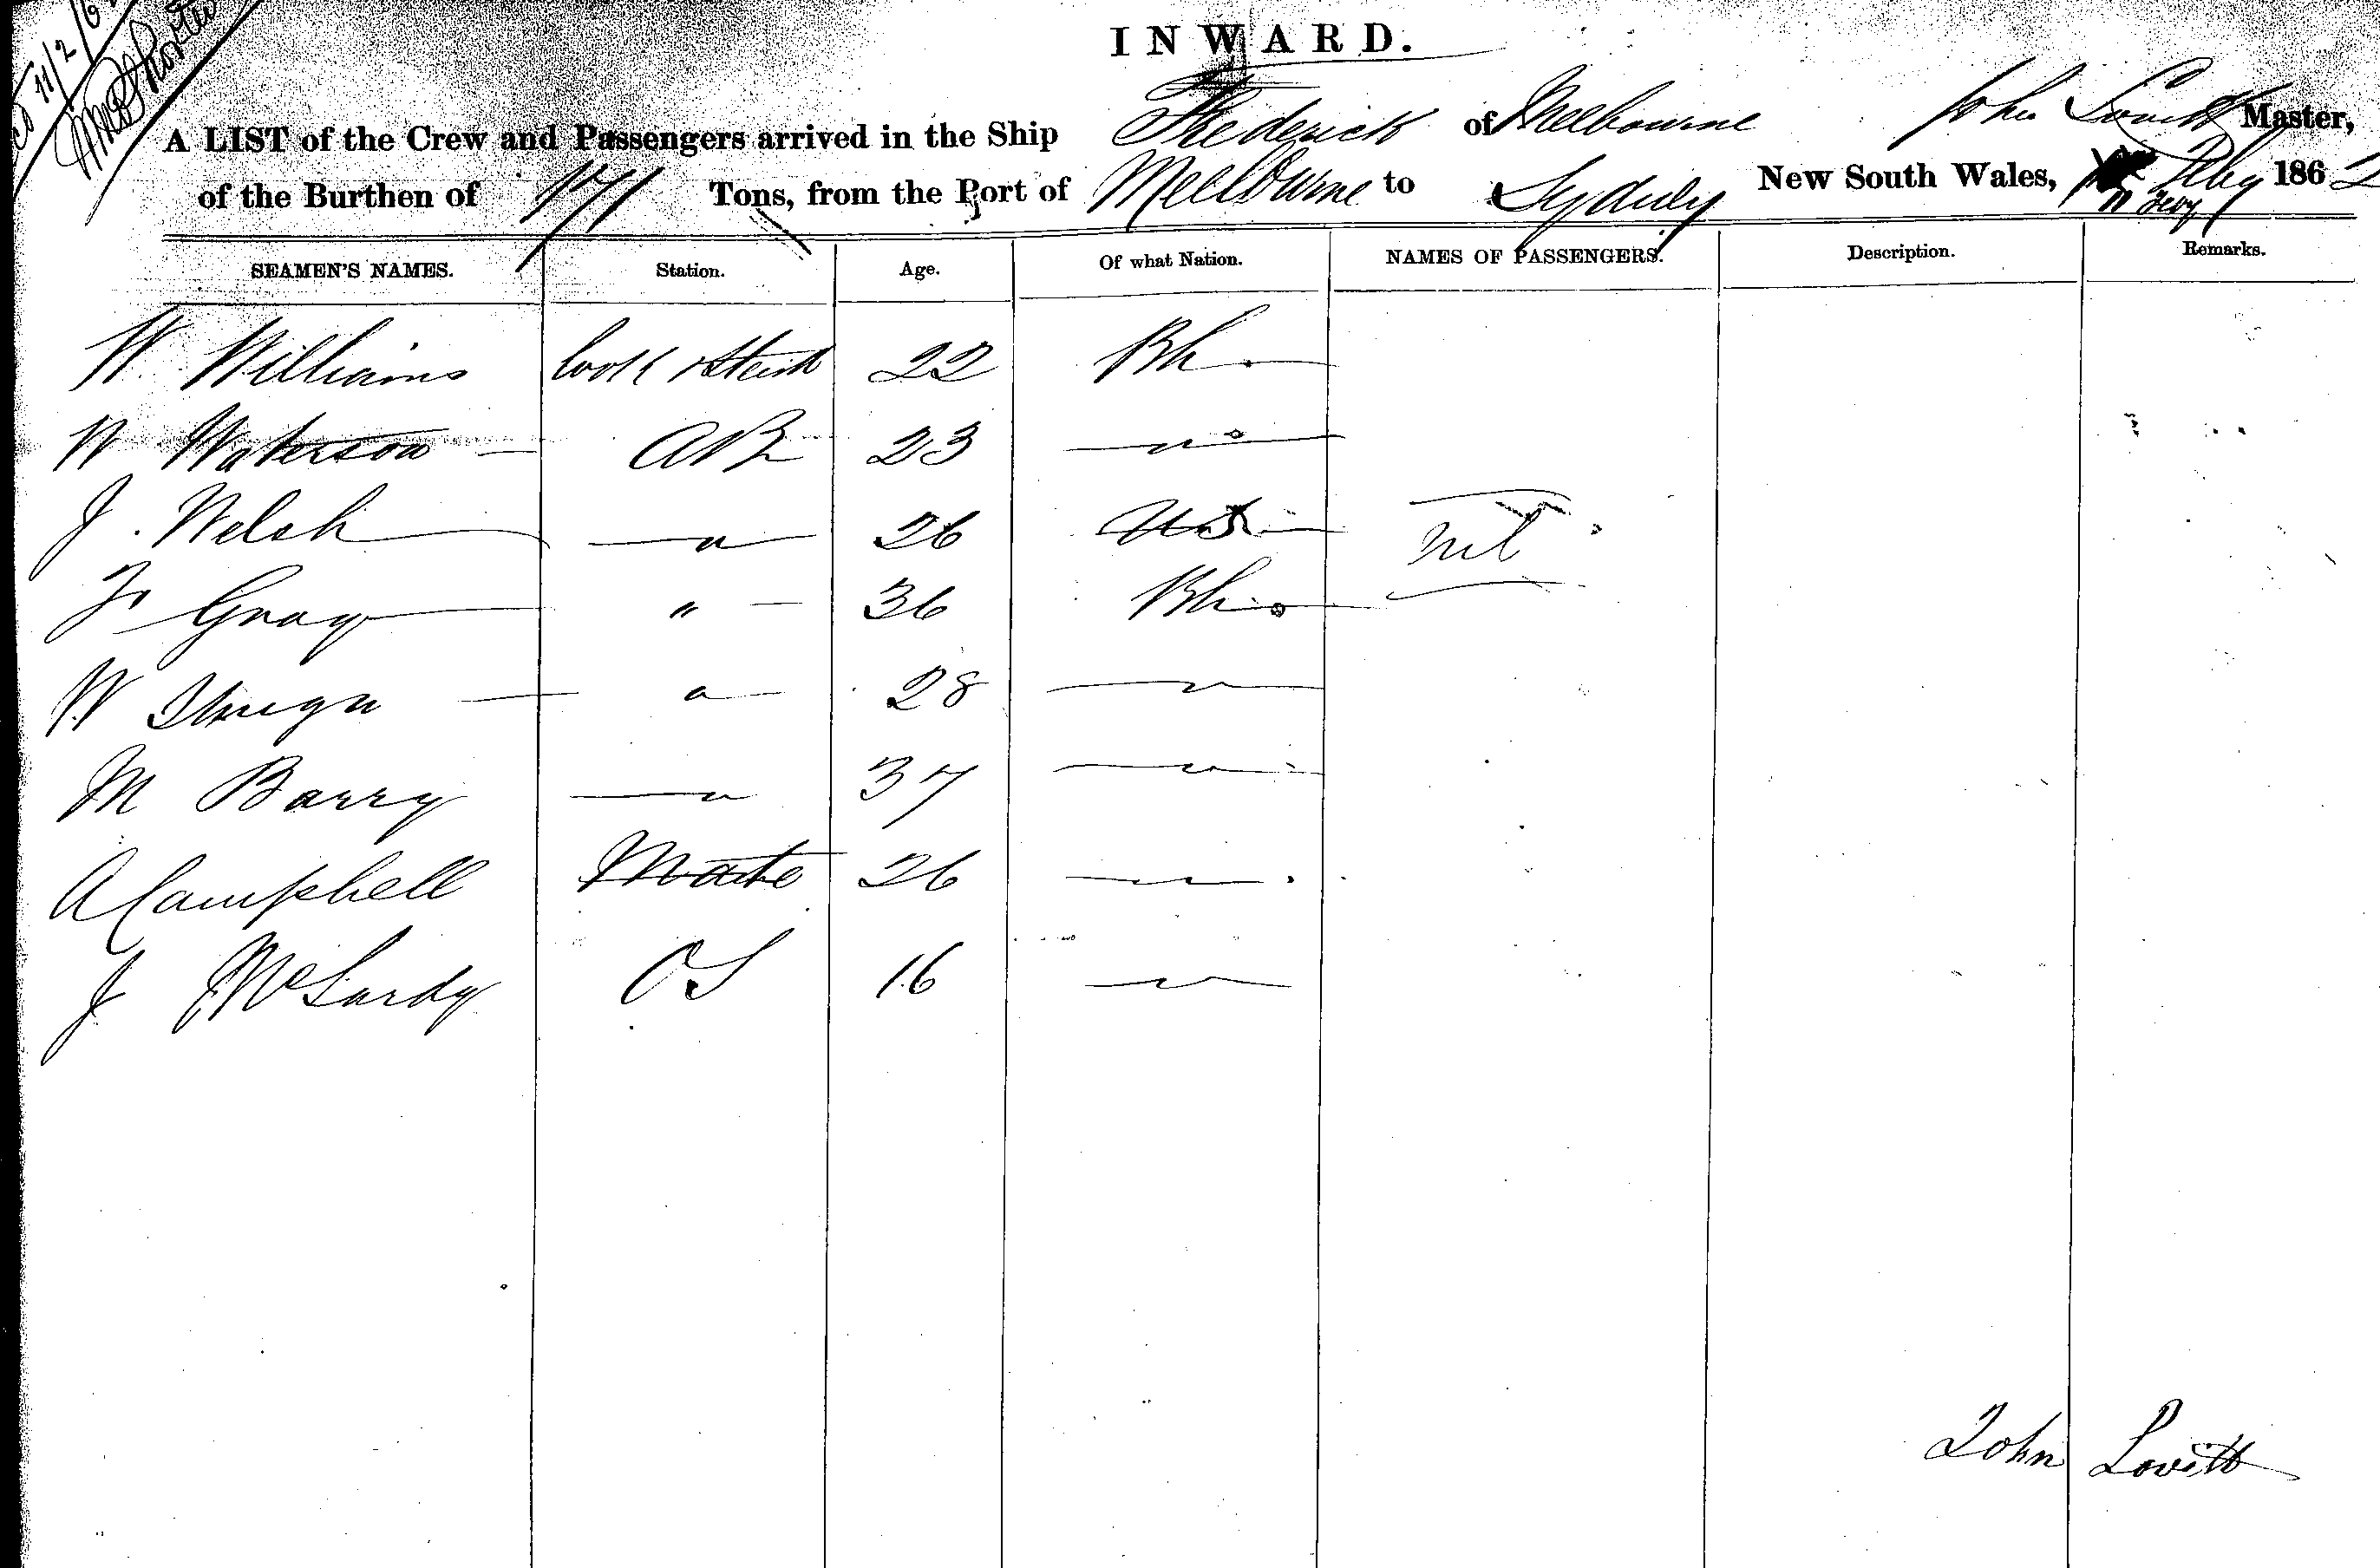 11/2/6
INWARD.
A LIST of the Crew and Passengers arrived in the Ship Frederick of Melbourne John Lovitt Master,
of the Burthen of 171 Tons, from the Port of Melbourne to Sydney New South Wales, Feby 1862
SEAMEN'S NAMES. Station. Age. Of what Nation. NAMES OF PASSENGERS. Description. Remarks.
W Williams Cook & Steward 22 Bh
W Waterson AB 23 — " —
J. Welsh — " — 26 U.S. Nil
Gray " — 36 Bh
W — " — 28 — " —
M Barry — " — 37 — " —
A Campbell Mate 26 — " —
J McLardy OS 16 — " —
John Lovitt